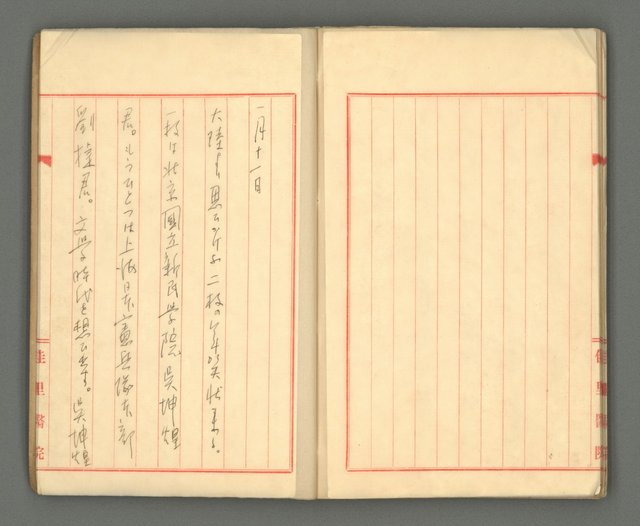 一月十一日
大陸より思ひがけぬ二枚の年賀状来る。
一枚は北京國立新民学院 吳坤煌
君。もうひとつは上海日本憲兵隊本部
劉捷君。文学時代を想ひ出す。吳坤煌
佳里醫院
佳里醫院